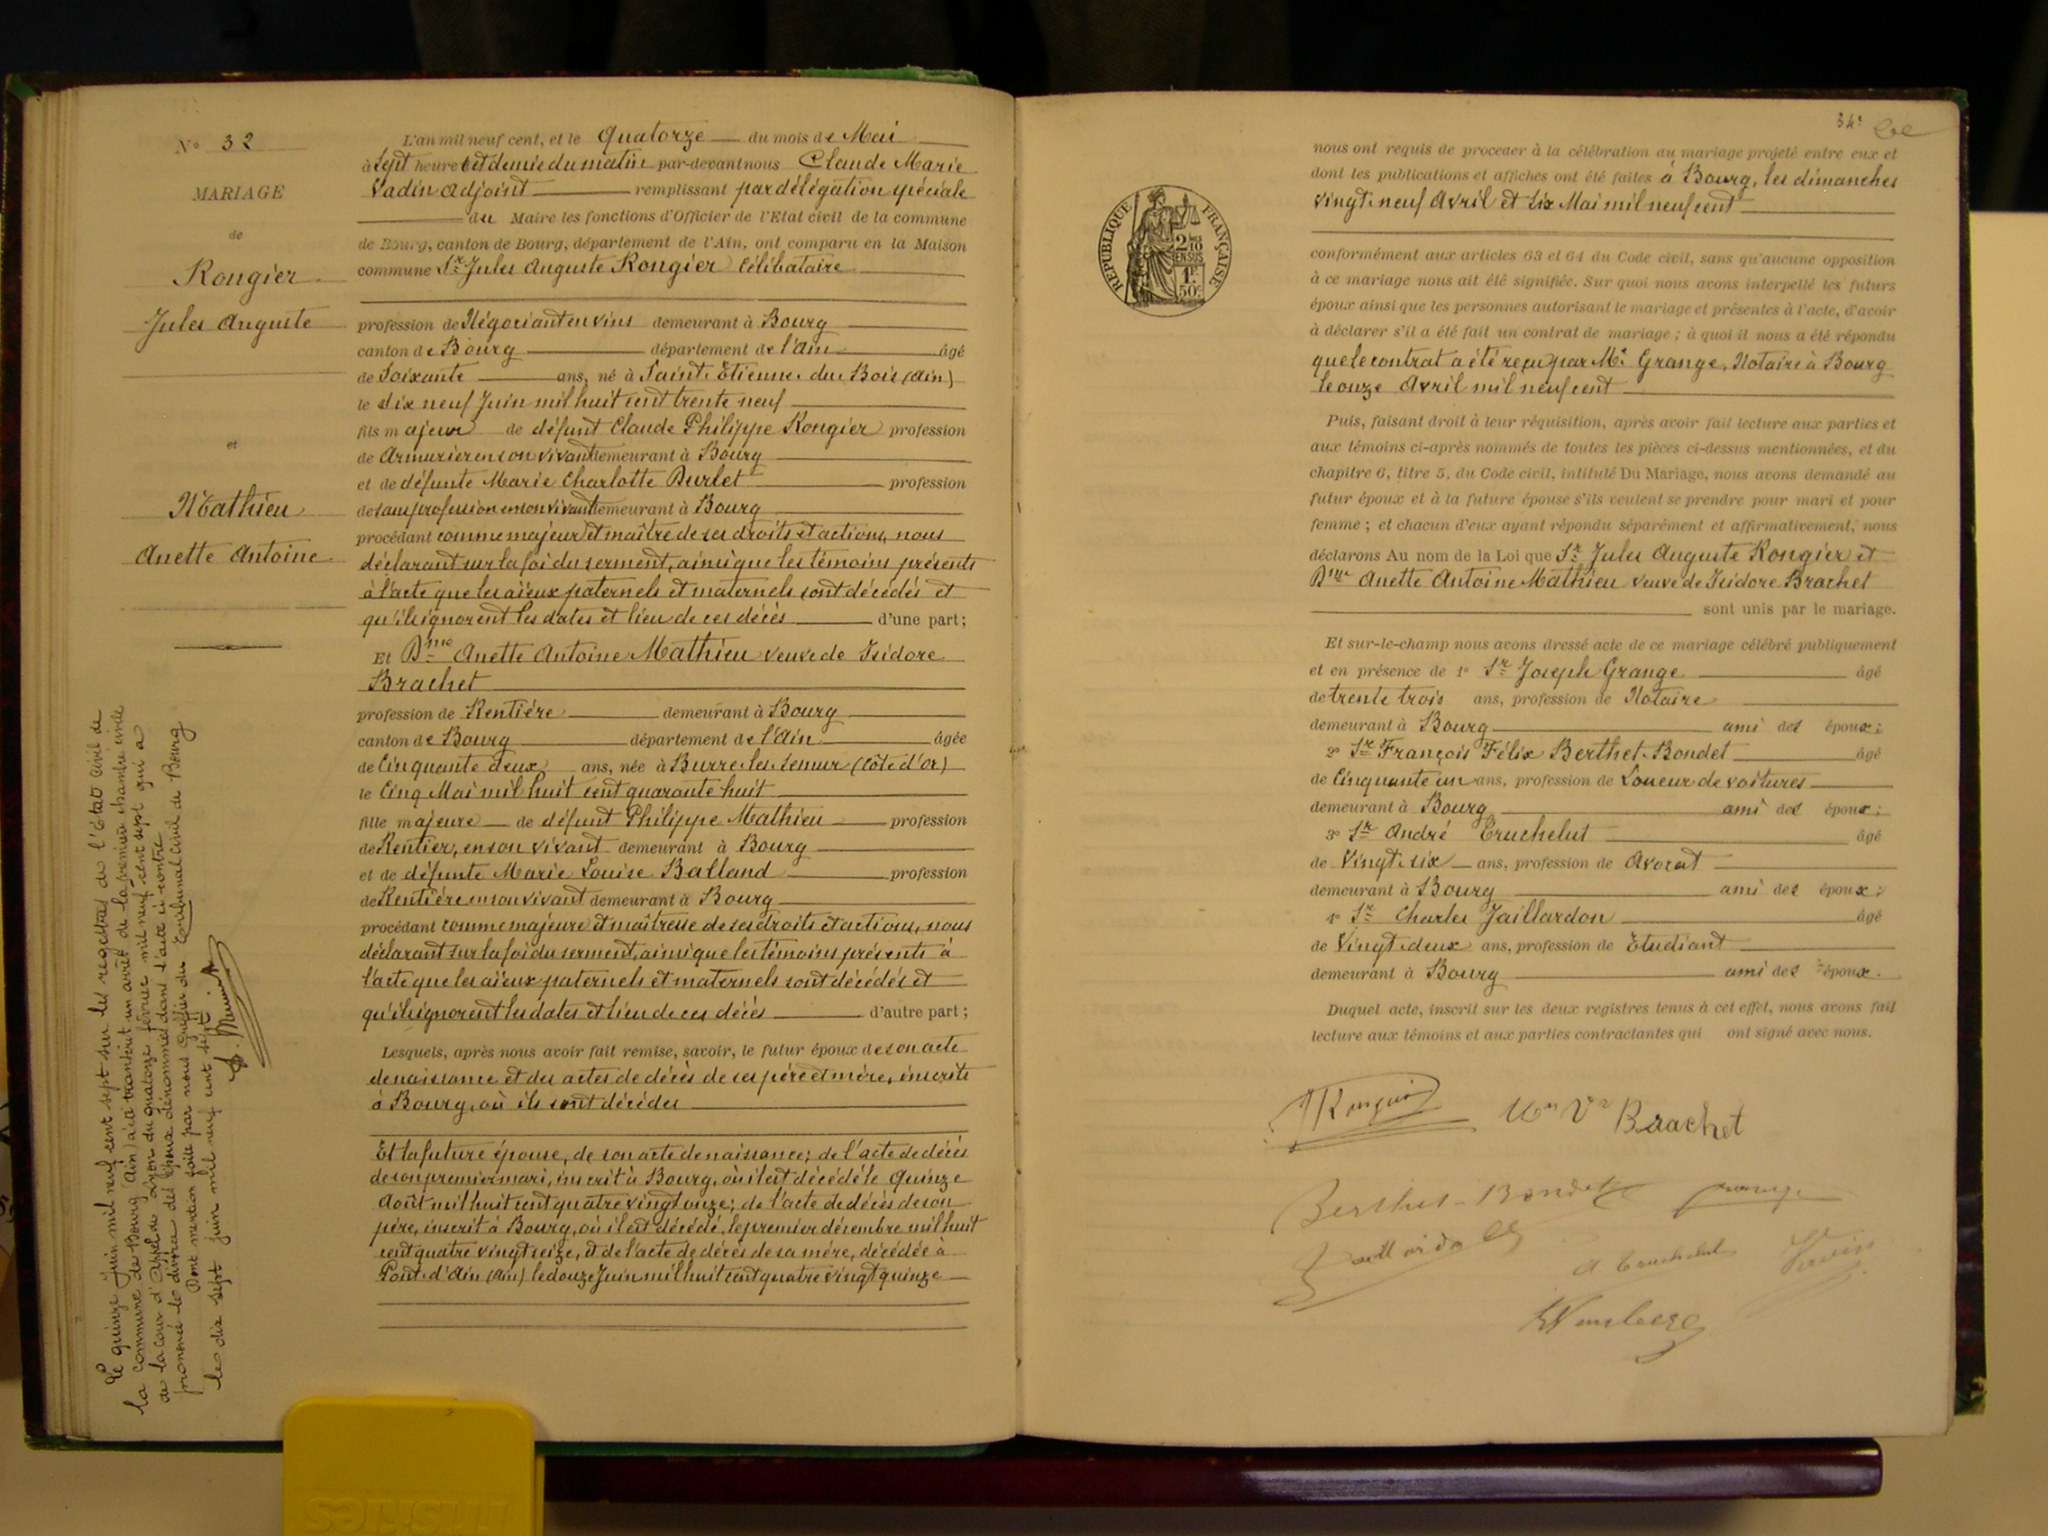 N° 32
MARIAGE
de
Rongier
Jules Auguste
et
Mathieu
Anette Antoine
Le quinze juin mil neuf cent sept sur les registres de l'état civil de
la commune de Bourg (Ain) a été transcrit un arrêt de la première chambre civile
de la cour d'appel de Lyon du quatorze février mil neuf cent sept qui a
prononcé le divorce des époux dénommés dans l'acte ci-contre
Dont mention faite par nous Greffier du Tribunal civil de Bourg
le dix sept juin mil neuf cent sept
L'an mil neuf cent, et le Quatorze du mois de Mai
à Sept heures et demie du matin par-devant nous Claude Marie
Vadin Adjoint remplissant par délégation spéciale
du Maire les fonctions d'Officier de l'Etat civil de la commune
de Bourg, canton de Bourg, département de l'Ain, ont comparu en la Maison
commune Sr Jules Auguste Rongier Célibataire
profession de Négociant en vins demeurant à Bourg
canton de Bourg département de l'Ain âgé
de Soixante ans, né à Saint Etienne du Bois (Ain)
le dix neuf Juin mil huit cent trente neuf
fils majeur de défunt Claude Philippe Rongier profession
de Armurier en son vivant demeurant à Bourg
et de défunte Marie Charlotte Burlet profession
de sans profession en son vivant demeurant à Bourg
procédant comme majeur et maître de ses droits et actions, nous
déclarant sur la foi du serment, ainsi que les témoins présents
à l'acte que les aïeux paternels et maternels sont décédés et
qu'ils ignorent les dates et lieu de ces décès d'une part;
Et Dme Anette Antoine Mathieu veuve de Isidore
Brachet
profession de Rentière demeurant à Bourg
canton de Bourg département de l'Ain âgée
de Cinquante deux ans, née à Burre les Semur (Côte d'or)
le Cinq Mai mil huit cent quarante huit
fille majeure de défunt Philippe Mathieu profession
de Rentier, en son vivant demeurant à Bourg
et de défunte Marie Louise Balland profession
de Rentière en son vivant demeurant à Bourg
procédant comme majeure et maîtresse de ses droits et actions, nous
déclarant sur la foi du serment, ainsi que les témoins présents à
l'acte que les aïeux paternels et maternels sont décédés et
qu'ils ignorent les dates et lieu de ces décès d'autre part;
Lesquels, après nous avoir fait remise, savoir, le futur époux de son acte
de naissance et des actes de décès de ses père et mère, inscrits
à Bourg, où ils sont décédés
Et la future épouse, de son acte de naissance; de l'acte de décès
de son premier mari, inscrit à Bourg, où il est décédé le Quinze
Août mil huit cent quatre vingt onze; de l'acte de décès de son
père, inscrit à Bourg, où il est décédé, le premier décembre mil huit
cent quatre vingt seize, et de l'acte de décès de sa mère, décédée à
Pont d'Ain (Ain) le douze Juin mil huit cent quatre vingt quinze
34e
RÉPUBLIQUE FRANÇAISE
2/10
EN SUS
1F
50c
nous ont requis de procéder à la célébration du mariage projeté entre eux et
dont les publications et affiches ont été faites à Bourg, les dimanches
vingt neuf Avril et six Mai mil neuf cent
conformément aux articles 63 et 64 du Code civil, sans qu'aucune opposition
à ce mariage nous ait été signifiée. Sur quoi nous avons interpellé les futurs
époux ainsi que les personnes autorisant le mariage et présentes à l'acte, d'avoir
à déclarer s'il a été fait un contrat de mariage; à quoi il nous a été répondu
que le contrat a été reçu par Me Grange, Notaire à Bourg
le onze Avril mil neuf cent
Puis, faisant droit à leur réquisition, après avoir fait lecture aux parties et
aux témoins ci-après nommés de toutes les pièces ci-dessus mentionnées, et du
chapitre 6, titre 5, du Code civil, intitulé Du Mariage, nous avons demandé au
futur époux et à la future épouse s'ils veulent se prendre pour mari et pour
femme; et chacun d'eux ayant répondu séparément et affirmativement, nous
déclarons Au nom de la Loi que Sr Jules Auguste Rongier et
Dme Anette Antoine Mathieu veuve de Isidore Brachet
sont unis par le mariage.
Et sur-le-champ nous avons dressé acte de ce mariage célébré publiquement
et en présence de 1° Sr Joseph Grange âgé
de trente trois ans, profession de Notaire
demeurant à Bourg ami des époux;
2° Sr François Félix Berthet-Bondet âgé
de Cinquante un ans, profession de Loueur de voitures
demeurant à Bourg ami des époux;
3° Sr André Truchelut âgé
de Vingt six ans, profession de Avocat
demeurant à Bourg ami des époux;
4° Sr Charles Jaillardon âgé
de Vingt deux ans, profession de Etudiant
demeurant à Bourg ami des époux.
Duquel acte, inscrit sur les deux registres tenus à cet effet, nous avons fait
lecture aux témoins et aux parties contractantes qui ont signé avec nous.
Rongier
Vve Brachet
Berthet-Bondet
Grange
Jaillardon
A Truchelut